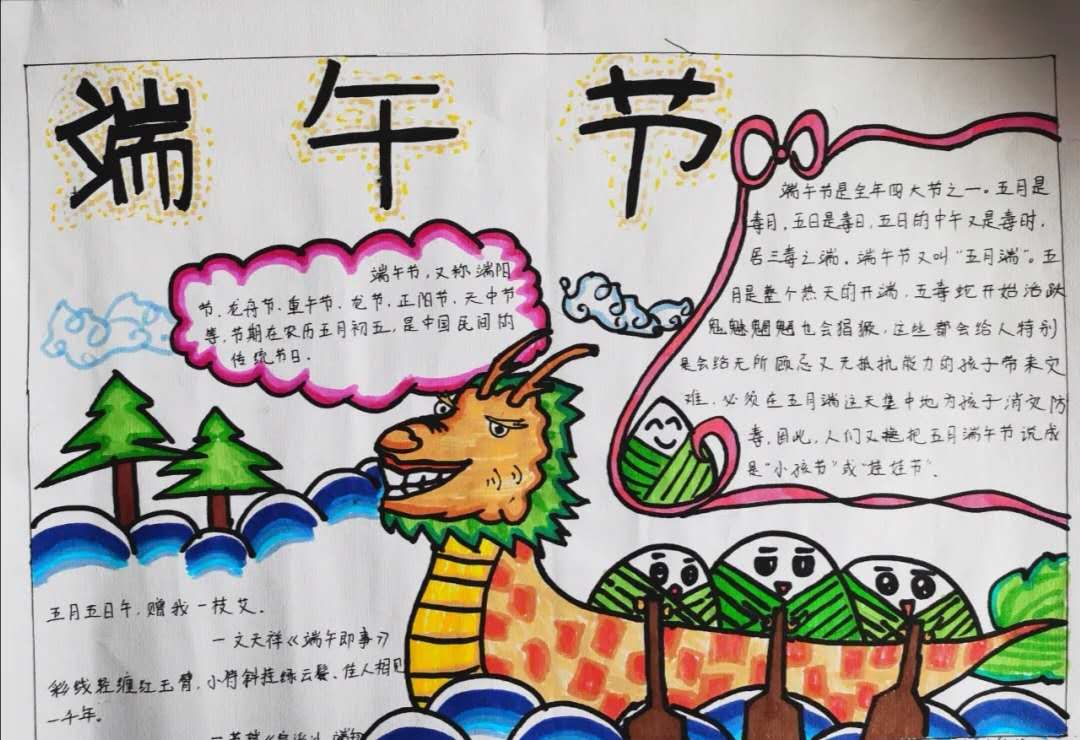 端午节
端午节，又称端阳
节、龙舟节、重午节、龙节、正阳节、天中节
等，节期在农历五月初五，是中国民间的
传统节日。
端午节是全年四大节之一。五月是
毒月，五日是毒日，五日的中午又是毒时，
居三毒之端。端午节又叫“五月端”。五
月是整个热天的开端，五毒蛇开始活跃
魑魅魍魉也会猖獗，这些都会给人特别
是会给无所顾忌又无抵抗能力的孩子带来灾
难，必须在五月端这天集中地为孩子消灾防
毒，因此，人们又把五月端午节说成
是“小孩节”或“娃娃节”.
五月五日午，赠我一枝艾.
一文天祥《端午即事》
彩线轻缠红玉臂，小符斜挂绿云鬟。佳人相见
一千年。